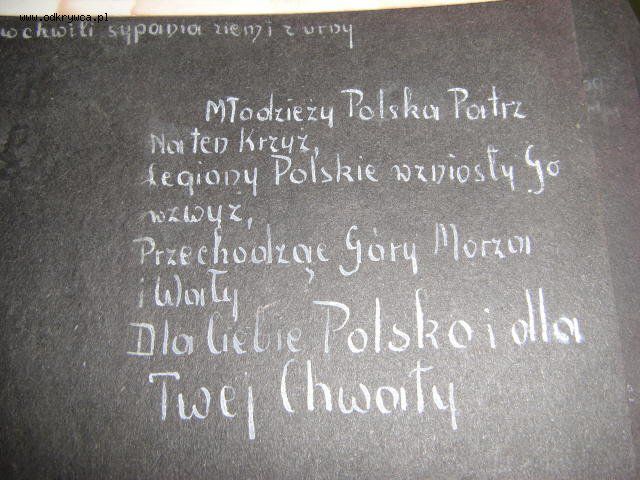 www.odkrywca.pl
w chwili sypania ziemi z urny
Młodzieży Polska Patrz
Na ten Krzyż,
Legiony Polskie wzniosły Go
wzwyż,
Przechodząc Góry Morza
i Wały
Dla Ciebie Polsko i dla
Twej Chwały